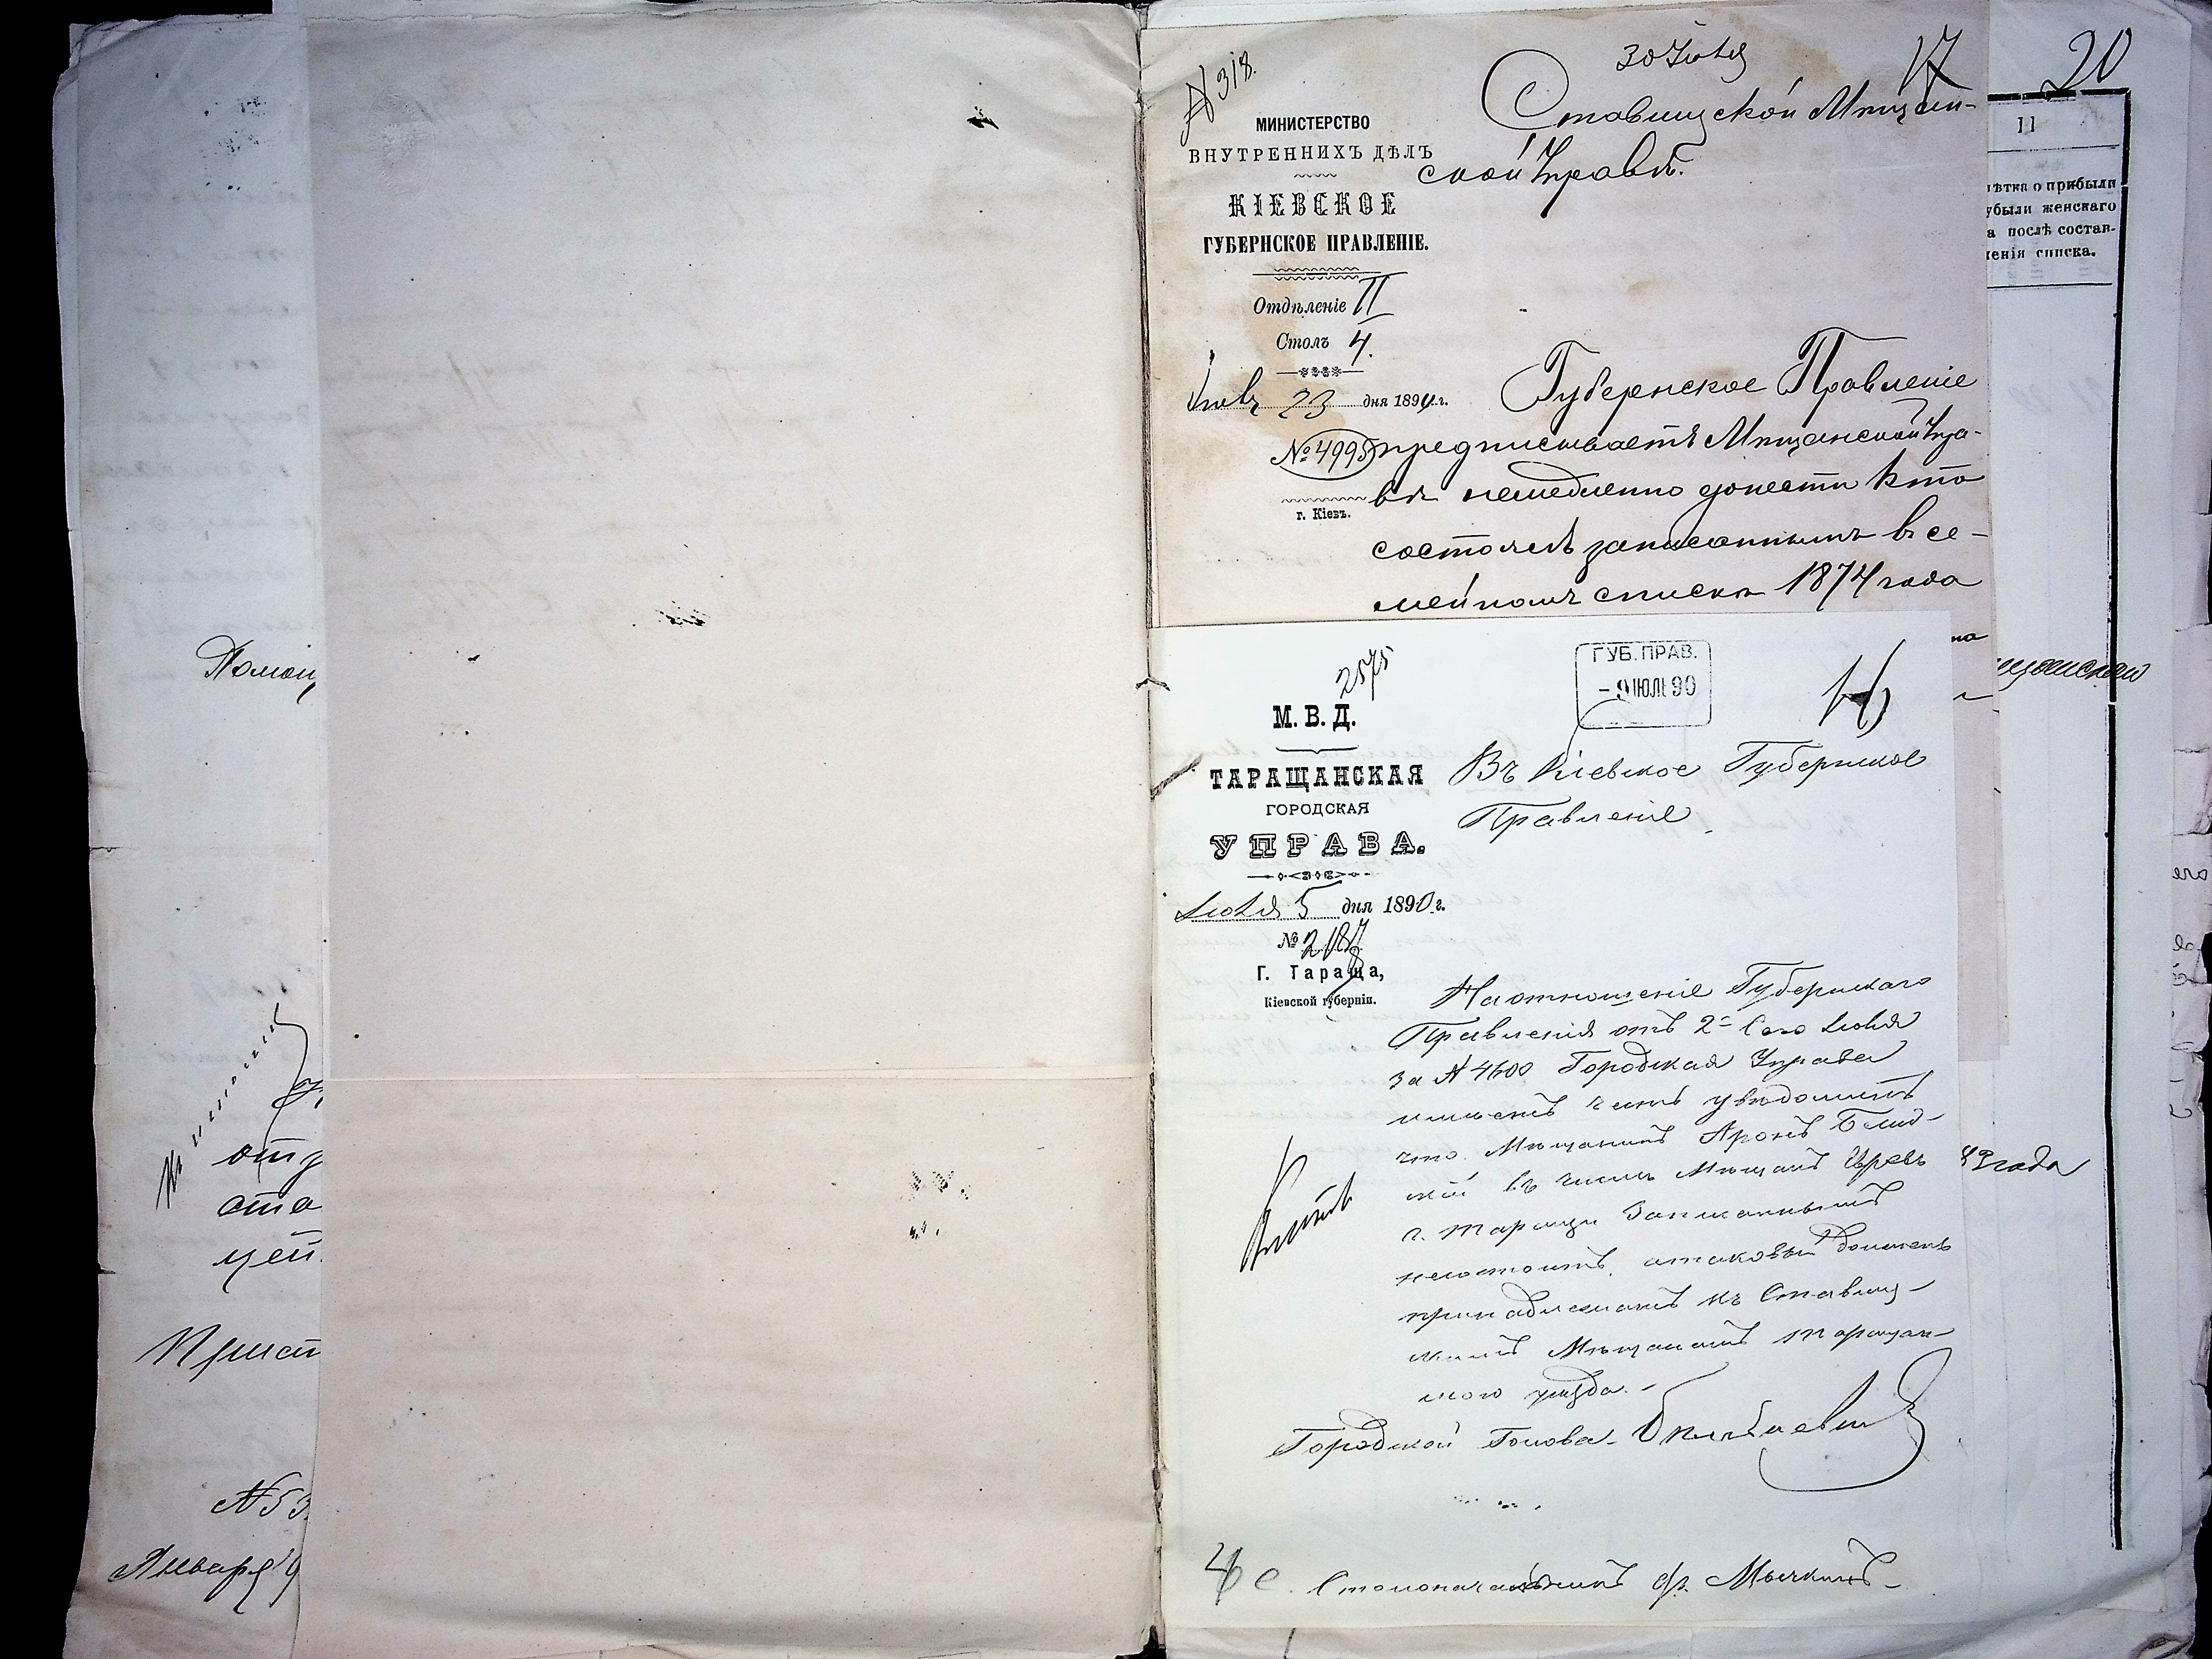 Помощ
отз
ста
цей.
Прист
N 53
Января 9
N 318.
30 Іюля
17
20
МИНИСТЕРСТВО
ВНУТРЕННИХЪ ДѢЛЪ
КІЕВСКОЕ
ГУБЕРНСКОЕ ПРАВЛЕНІЕ.
Отдѣленіе II
Столъ 4.
23 дня 1890 г.
№ 4995
г. Кіевъ.
Ставищской Мѣщан-
ской Управѣ.
Губернское Правленіе
предписываетъ Мѣщанской Упра-
вѣ немедленно донести кто
состоялъ записаннымъ в се-
мейномъ списке 1874 года
11
ѣтка о прибыли
убыли женскаго
а послѣ состав-
ленія списка.
года
2575
ГУБ. ПРАВ.
- 9 ІЮЛ 90
16
М. В. Д.
ТАРАЩАНСКАЯ
ГОРОДСКАЯ
УПРАВА.
Іюля 5 дня 1890 г.
№ 2187
Г. Тараща,
Кіевской губерніи.
Въ Кіевское Губернское
Правленіе
На отношеніе Губернскаго
Правленія отъ 2го Сего Іюля
за N 4600 Городская Управа
имѣетъ честь увѣдомить
что Мѣщанинъ Аронъ
въ числѣ Мѣщанъ Евреевъ
г. Таращи Записаннымъ
несостоитъ, а таковый долженъ
принадлежать къ Ставищ-
скимъ Мѣщанамъ Таращан-
скаго уѣзда. -
Городской Голова
Столоначальникъ